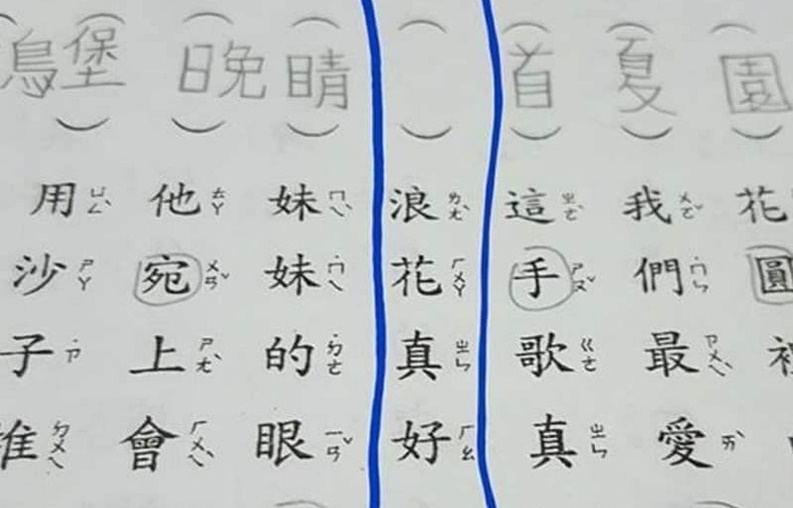 (園)花圓
(夏)我ㄨㄛˇ們˙ㄇㄣ最ㄗㄨㄟˋ愛ㄞˋ
(首)這ㄓㄜˋ手ㄕㄡˇ歌ㄍㄜ真ㄓㄣ
( )浪ㄌㄤˋ花ㄏㄨㄚ真ㄓㄣ好ㄏㄠˇ
(睛)妹ㄇㄟˋ妹˙ㄇㄟ的˙ㄉㄜ眼ㄧㄢˇ
(晚)他ㄊㄚ宛ㄨㄢˇ上ㄕㄤˋ會ㄏㄨㄟˋ
(堡)用ㄩㄥˋ沙ㄕㄚ子˙ㄗ堆ㄉㄨㄟ